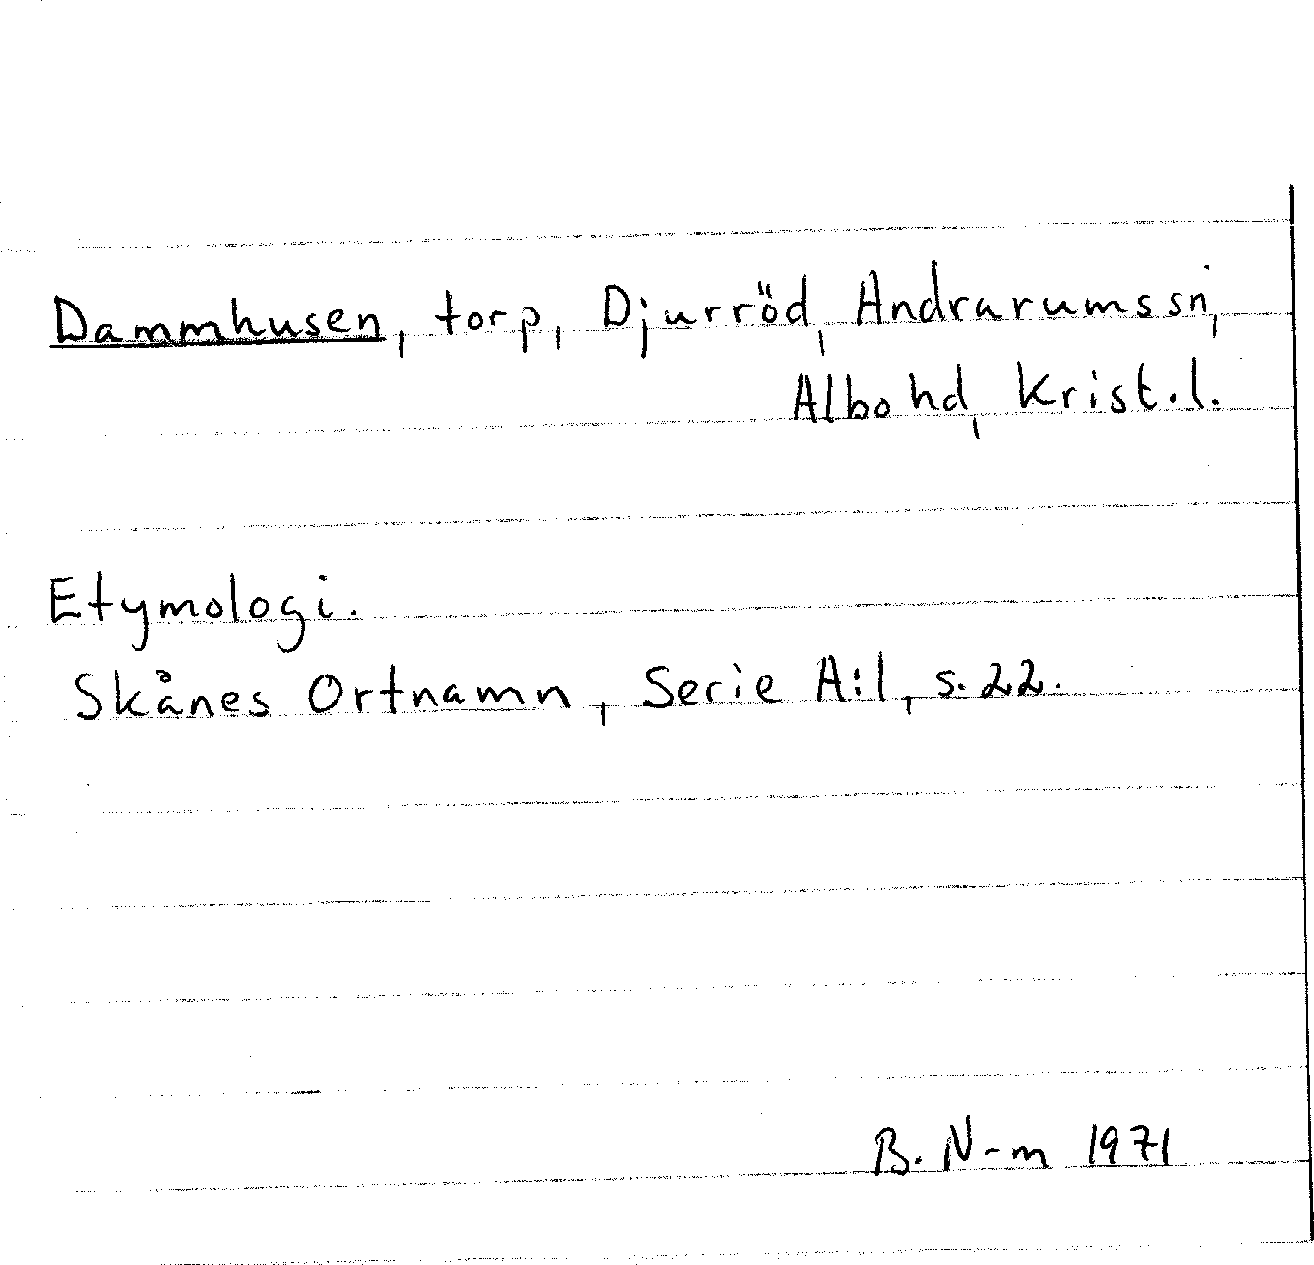 Dammhusen, torp, Djurröd, Andrarumssn,
Albo hd, Krist.l.
Etymologi.
Skånes Ortnamn, Serie A:1, s. 22.
B. N-m 1971